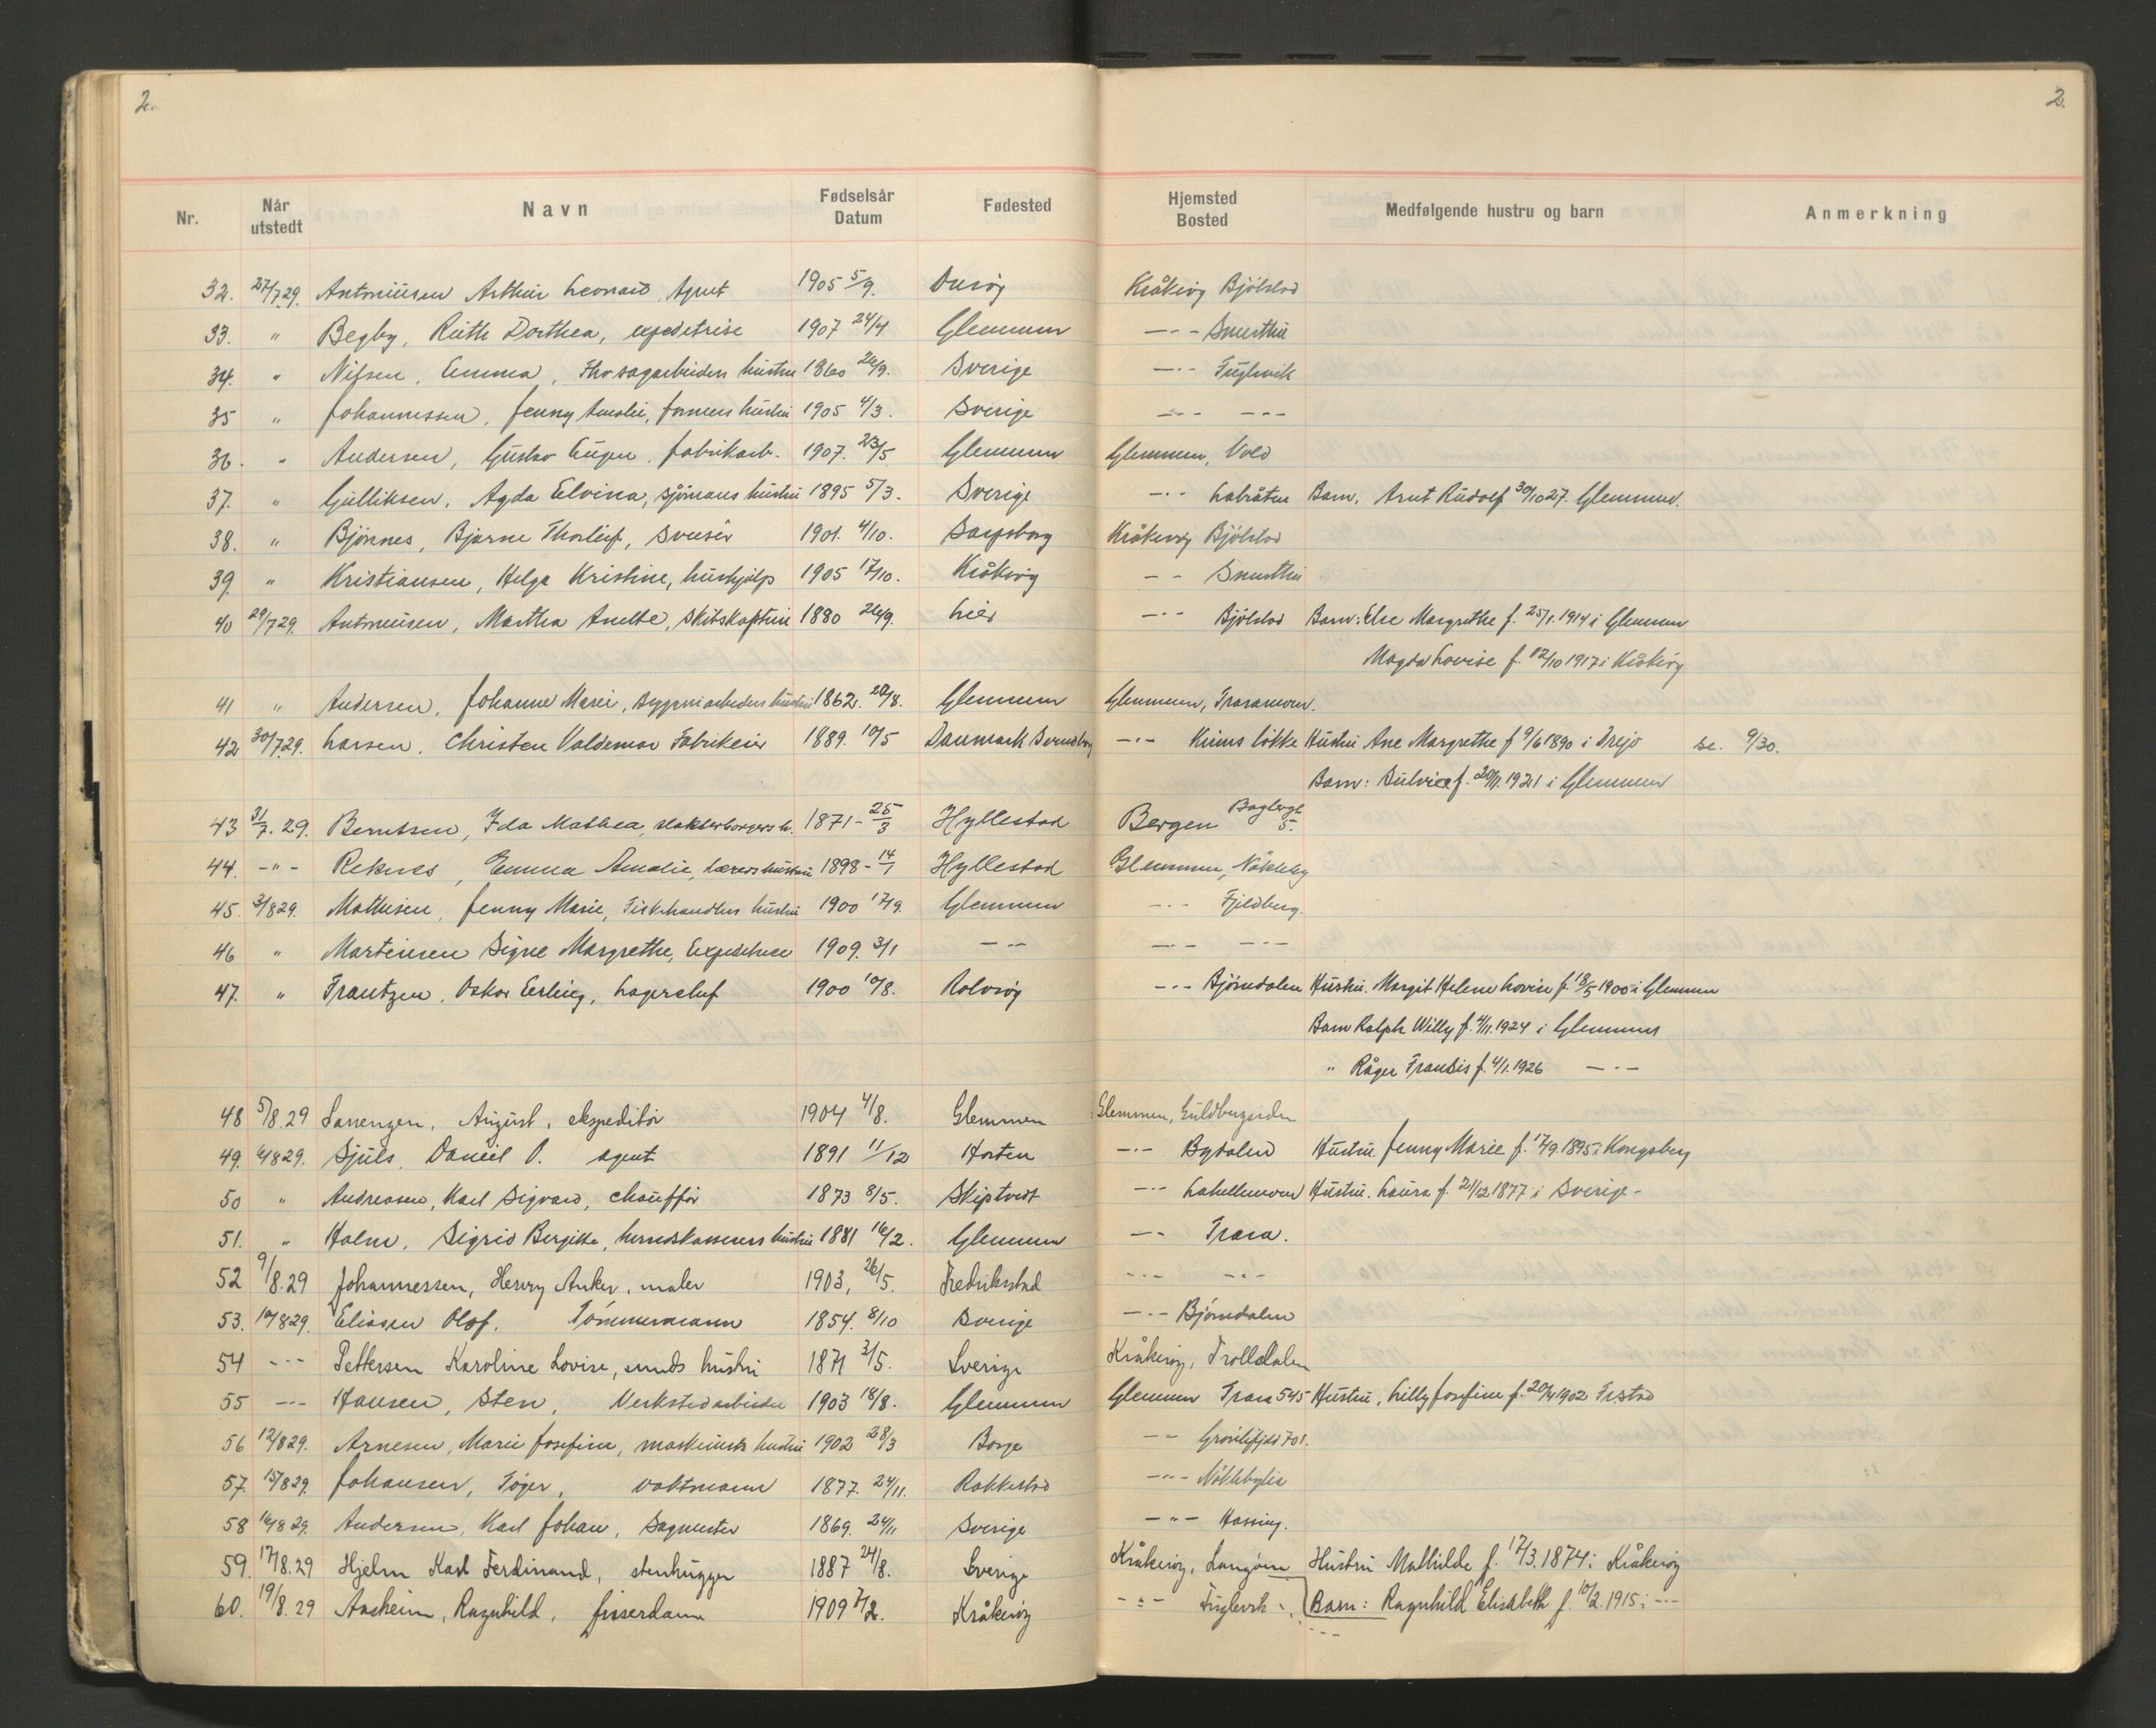 2. 2.
Nr. Når utstedt Navn Fødselsår Datum Fødested Hjemsted Bosted Medfølgende hustru og barn Anmerkning
32. 27/7.29. Antoniusen Arthur Leonard, Agent 1905 5/9. Onsøy Kråkerøy Bjölstad
33. " Begby, Ruth Dorthea, expeditrise 1907 24/4 Glemmen -"- Smerthu
34. " Nilsen, Emma, Fhv sagarbeiders hustru 1860 26/9. Sverige -"- Fuglevik
35 " Johannessen, Jenny Amalie, formers hustru 1905 4/3. Sverige -"- -"-
36. " Andersen, Gustav Eugen, fabrikarb. 1907. 23/5 Glemmen Glemmen, Vold
37. " Gulliksen, Agda Elvina, sjömans hustru 1895 5/3. Sverige -"- Labråten Barn. Arnt Rudolf 30/10 27. Glemmen.
38. " Bjönnes, Bjarne Thorleif, 1901. 4/10. Sarpsborg Kråkerøy Bjölstad
39. " Kristiansen, Helga Kristine, hushjelp 1905 17/10. Kråkerøy - - Smerthu
40 29/7 29. Antoniusen, Martha Anette, skibskaptein 1880 26/9. Lier -"- Bjölstad Barn: Else Margrethe f. 25/1. 1914 i Glemmen
Magda Lovise f. 12/10 1917 i Kråkerøy
41 " Andersen, Johanne Marie, hustru 1862. 20/8. Glemmen Glemmen, Traramoen.
42 30/7.29. Larsen, Christen Valdemar Fabrikeier 1889. 10/5 Danmark Svendborg -"- Kiims lökke Hustru Ane Margrethe f 9/6 1890 i Drejö se. 9/30.
Barn: f. 20/11. 1921 i Glemmen
43 31/7. 29. Berntsen, Ida Mathea, h. 1871 - 25/3 Hyllestad Bergen 5.
44. -"- Reknes, Emma Amalie, Lærers hustru 1898 - 14/1 Hyllestad Glemmen, Nökleby
45. 3/8 29. Mathisen, Jenny Marie, Fiskehandlers hustru 1900 17/9. Glemmen -"- Fjeldberg.
46 " Martinsen Signe Margrethe, Expeditrise 1909. 3/1 -"- -"- -"-
47. " Frantzen, Oskar Erling, Lagerchef 1900 10/8. Rolvsøy -"- Björndalen Hustru. Margit Helene Lovise f. 18/5 1900 i Glemmen
Barn Ralph Willy f. 4/11. 1924 i Glemmen
" Råger Frantis f. 4/1. 1926 -"-
48 5/8.29 August, ekspeditör 1904 4/8. Glemmen Glemmen, Guldbergsiden
49. 6/8 29. Sjuls, Daniel O. agent 1891 11/12 Horten -"- Bydalen Hustru. Jenny Marie f. 17/9. 1895 i Kongsberg
50 " Andreasen, Karl Sigvard, chaufför 1873 8/5. Skiptvedt -"- Lahellemoen Hustru. Laura f. 21/12 1877 i Sverige -
51. " Holm, Sigrid Bergitte, herredskasserers hustru 1881 16/2. Glemmen -"- Trara.
52 9/8.29 Johannessen, Henry Anker, maler 1903, 26/5. Fredrikstad -"- -"-
53. 10/8 29. Eliasen Olof. Tömmermann 1854. 8/10 Sverige -"- Björndalen
54 -"- Pettersen Karoline Lovise, smeds hustru 1871 3/5. Sverige Kråkerøy, Trolldalen
55 -"- Hansen, Sten, Verkstedarbeider 1903 18/8. Glemmen Glemmen Trara 545 Hustru, Lilly Josefine f. 20/4 1902 Fr.stad
56 12/8 29. Arnesen, Marie Josefine, maskinists hustru 1902 28/3 Borge -"- 701.
57. 15/8 29. Johansen, Töger, vaktmann 1877. 24/11. Rakkestad -"- Nöklebylia
58 16/8 29. Andersen, Karl Johan, Sagmester 1869. 24/11 Sverige -"- Hassing.
59. 17/8.29 Hjelm Karl Ferdinand, stenhugger 1887 24/8. Sverige Kråkerøy, Langøen Hustru Mathilde f. 17/3. 1874 i Kråkerøy
60. 19/8.29 Aasheim, Ragnhild, frisørdame 1909 7/2. Kråkerøy -"- Fuglevik Barn: Ragnhild Elisabeth f. 10/2. 1915 i -"-